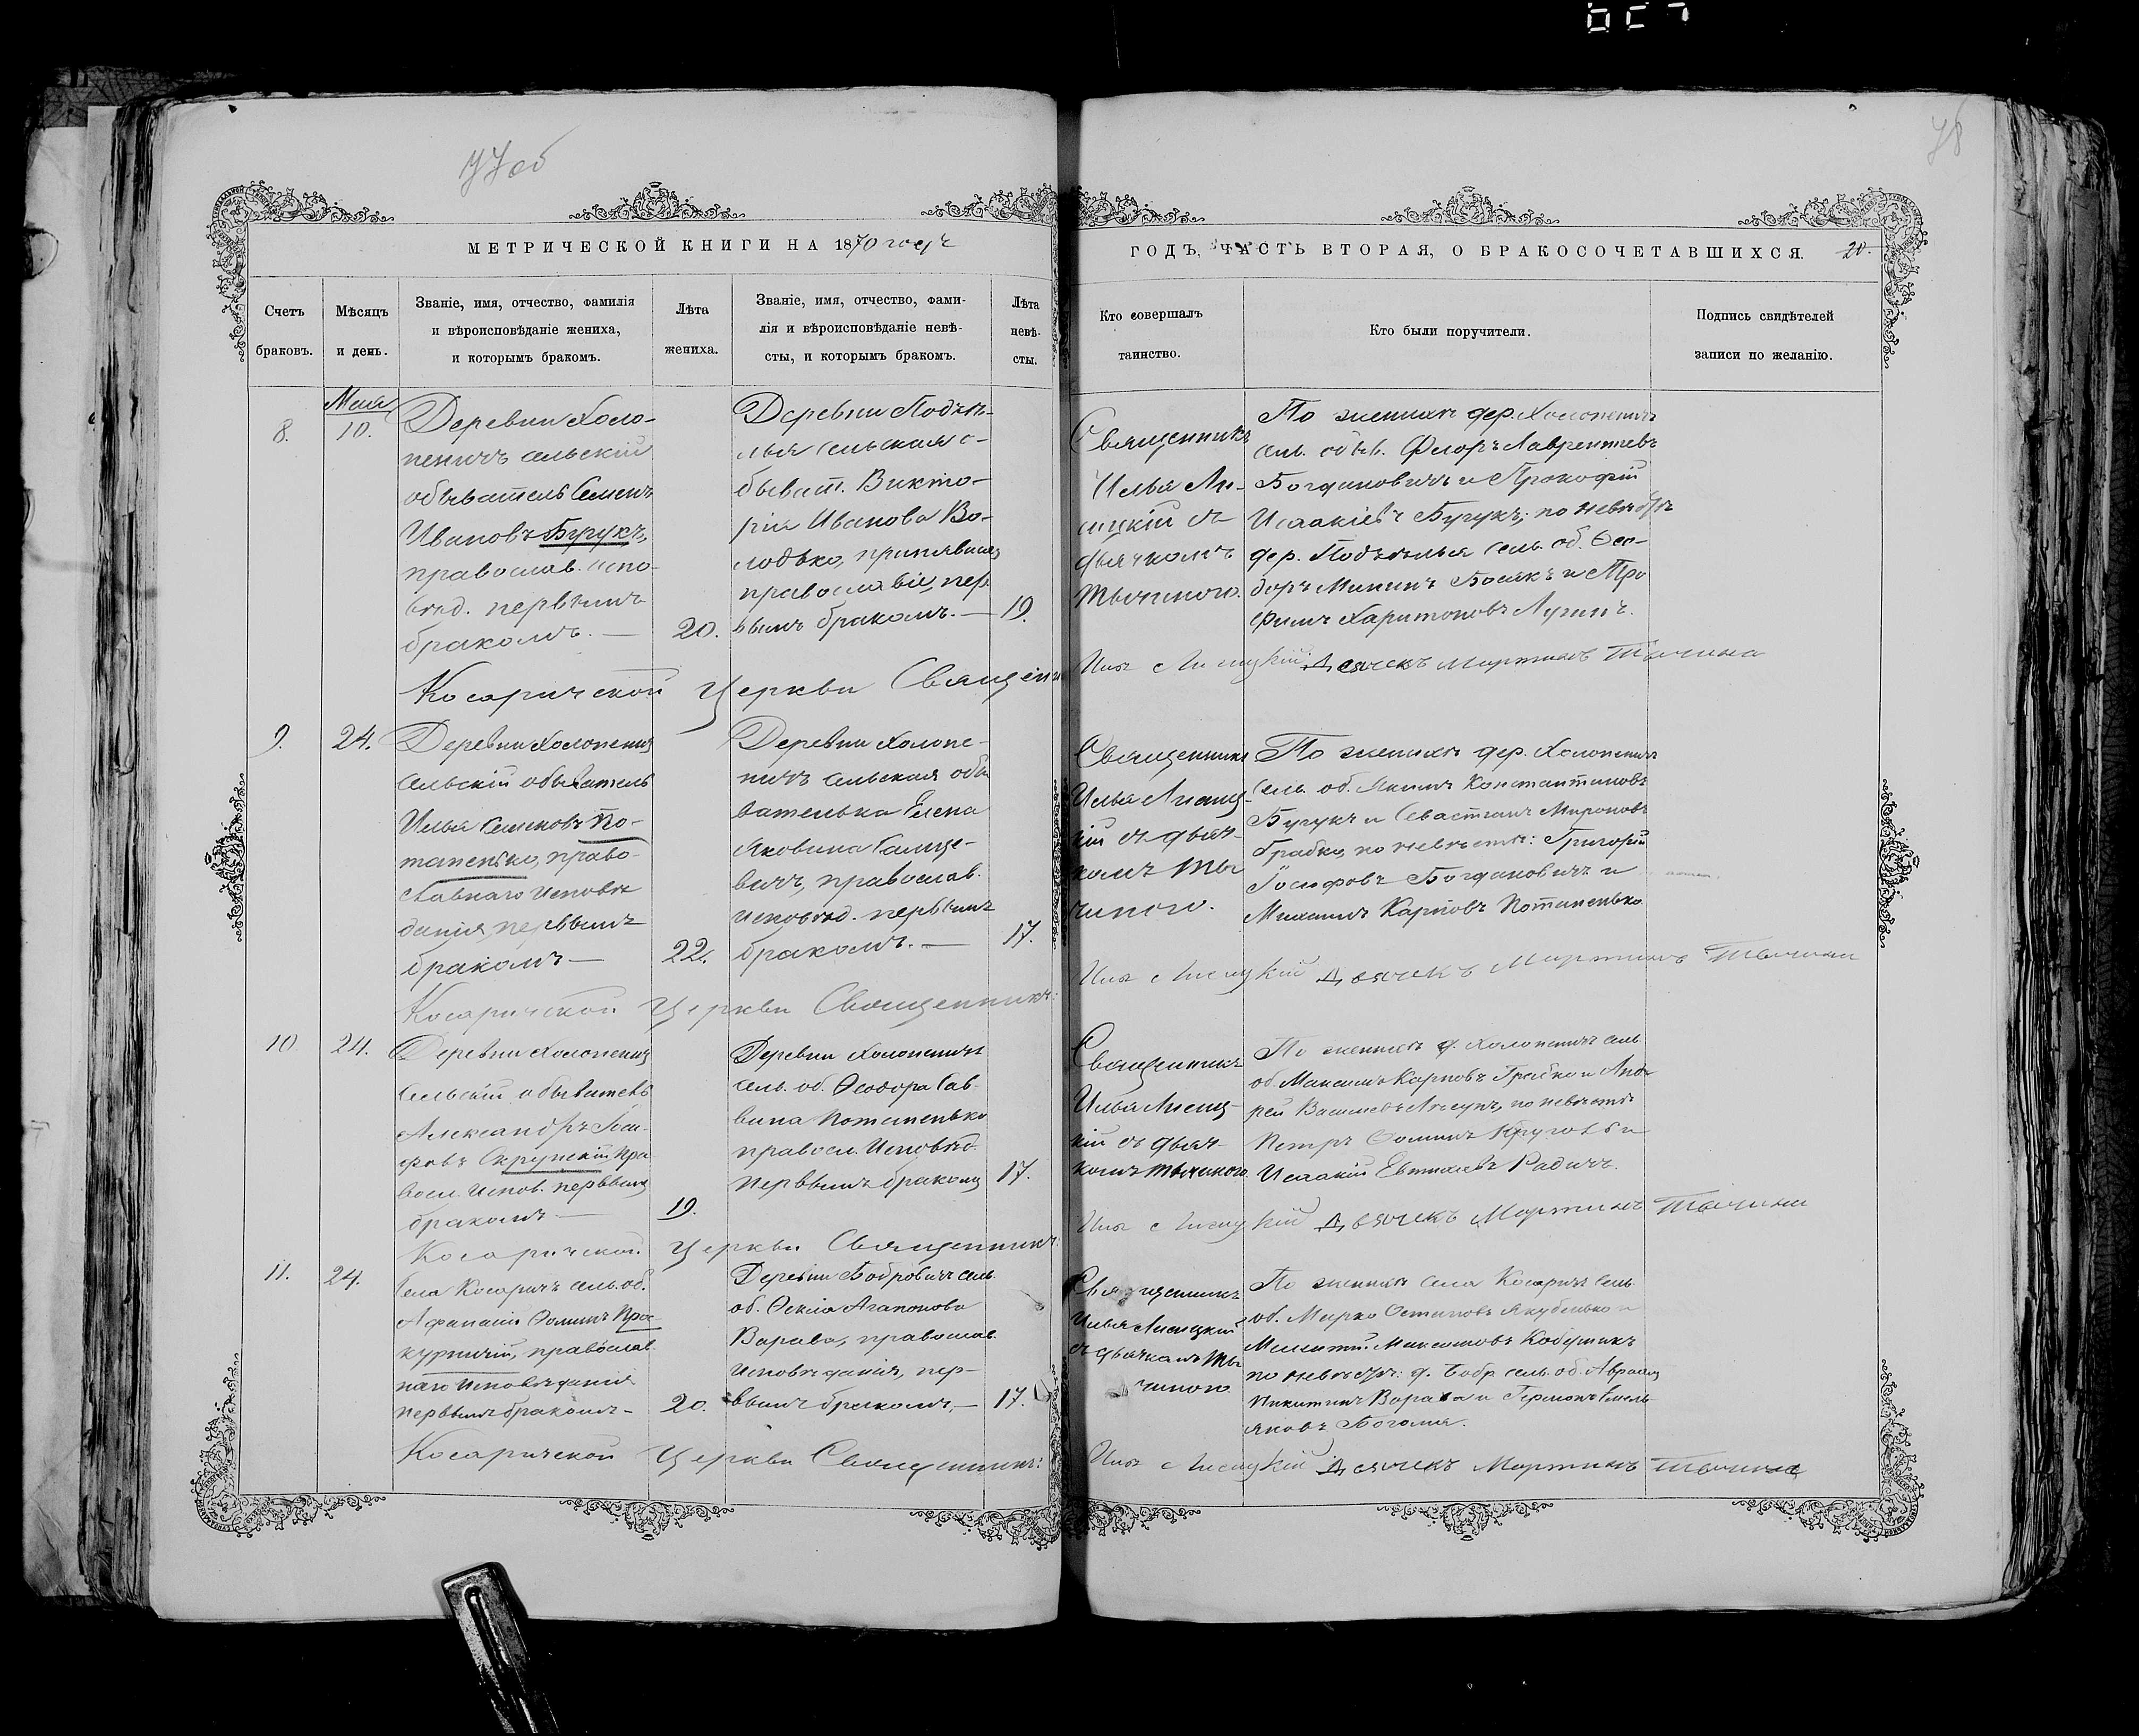 77об
78
МЕТРИЧЕСКОЙ КНИГИ НА 1870 годъ
ГОДЪ, ЧАСТЬ ВТОРАЯ, О БРАКОСОЧЕТАВШИХСЯ. 20.
Счетъ браковъ.
Мѣсяцъ и день.
Званіе, имя, отчество, фамилія
и вѣроисповѣданіе жениха,
и которымъ бракомъ.
Лѣта жениха.
Званіе, имя, отчество, фами-
лія и вѣроисповѣданіе невѣ-
сты, и которымъ бракомъ.
Лѣта невѣ-
сты.
Кто совершалъ
таинство.
Кто были поручители.
Подпись свидѣтелей
записи по желанію.
8.
Мая
10.
Деревни Холо-
пеничъ сельскій
обыватель Семенъ
Ивановъ Бугукъ,
православ. испо-
вѣд. первымъ
бракомъ. —
20.
Деревни Подъѣль-
лья сельская о-
быват. Викто-
рія Иванова Во-
лодько, принявшая
православіе, пер-
вымъ бракомъ. —
19.
Священникъ
Илья Ли-
сицкій съ
дьячкомъ
Тычиною.
По женихѣ дер. Холопеничъ
сель. обыв. Флоръ Лаврентіевъ
Богдановичъ и Прокофій
Исаакіевъ Бугукъ; по невѣстѣ
дер. Подъѣлья сель. об. Ѳео-
доръ Мининъ Босякъ и Тро-
фимъ Харитоновъ Лузинъ.
Косаричской Церкви Священникъ
Илія Лисицкій Дьячекъ Мартинъ Тычина
9.
24.
Деревни Холопеничъ
сельскій обыватель
Илья Семеновъ По-
тапенько, право-
славнаго исповѣ-
данія, первымъ
бракомъ —
22.
Деревни Холопе-
ничъ сельская обы-
вателька Елена
Яковина Салице-
вичъ, православ.
исповѣд. первымъ
бракомъ. —
17.
Священникъ
Илья Лисиц-
кій съ дьяч-
комъ Ты-
чиною.
По женихѣ дер. Холопеничъ
сель. об. Якимъ Константиновъ
Бугукъ и Севастіанъ Мироновъ
Грабко, по невѣстѣ: Григорій
Іосифовъ Богдановичъ и
Михаилъ Карповъ Потапенько.
Косаричской Церкви Священникъ:
Илія Лисицкій Дьячекъ Мартинъ Тычина
10.
24.
Деревни Холопеничъ
сельскій обыватель
Александръ Іоси-
фовъ Скрупскій, пра-
восл. испов. первымъ
бракомъ —
19.
Деревни Холопеничъ
сель. об. Ѳеодора Сав-
вина Потапенько
правосл. исповѣд.
первымъ бракомъ
17.
Священникъ
Илья Лисиц-
кій съ дьяч-
комъ Тычиною.
По женихѣ д. Холопеничъ сель.
об. Максимъ Карповъ Грабко и Анд-
рей Васильевъ Лисунъ, по невѣстѣ
Петръ Ѳоминъ Круговъ и
Исаакій Евтихіевъ Радичъ.
Косаричской Церкви Священникъ:
Илія Лисицкій Дьячекъ Мартинъ Тычина
11.
24.
Села Косаричъ сель. об.
Афанасій Ѳоминъ Про-
курничій, православ-
наго исповѣданія
первымъ бракомъ —
20.
Деревни Бобровичъ сель.
об. Ѳекла Агапонова
Варава, православ.
исповѣданія, пер-
вымъ бракомъ, —
17.
Священникъ
Илья Лисицкій
съ дьячкомъ Ты-
чиною
По женихѣ села Косаричъ сель.
об. Марко Остаповъ Якубенько и
Мелентій Максимовъ Кобушикъ
по невѣстѣ: д. Бобр. сель. об. Авраамъ
Никитинъ Варава и Германъ Емель-
яновъ Богомя.
Косаричской Церкви Священникъ:
Илія Лисицкій Дьячекъ Мартинъ Тычина